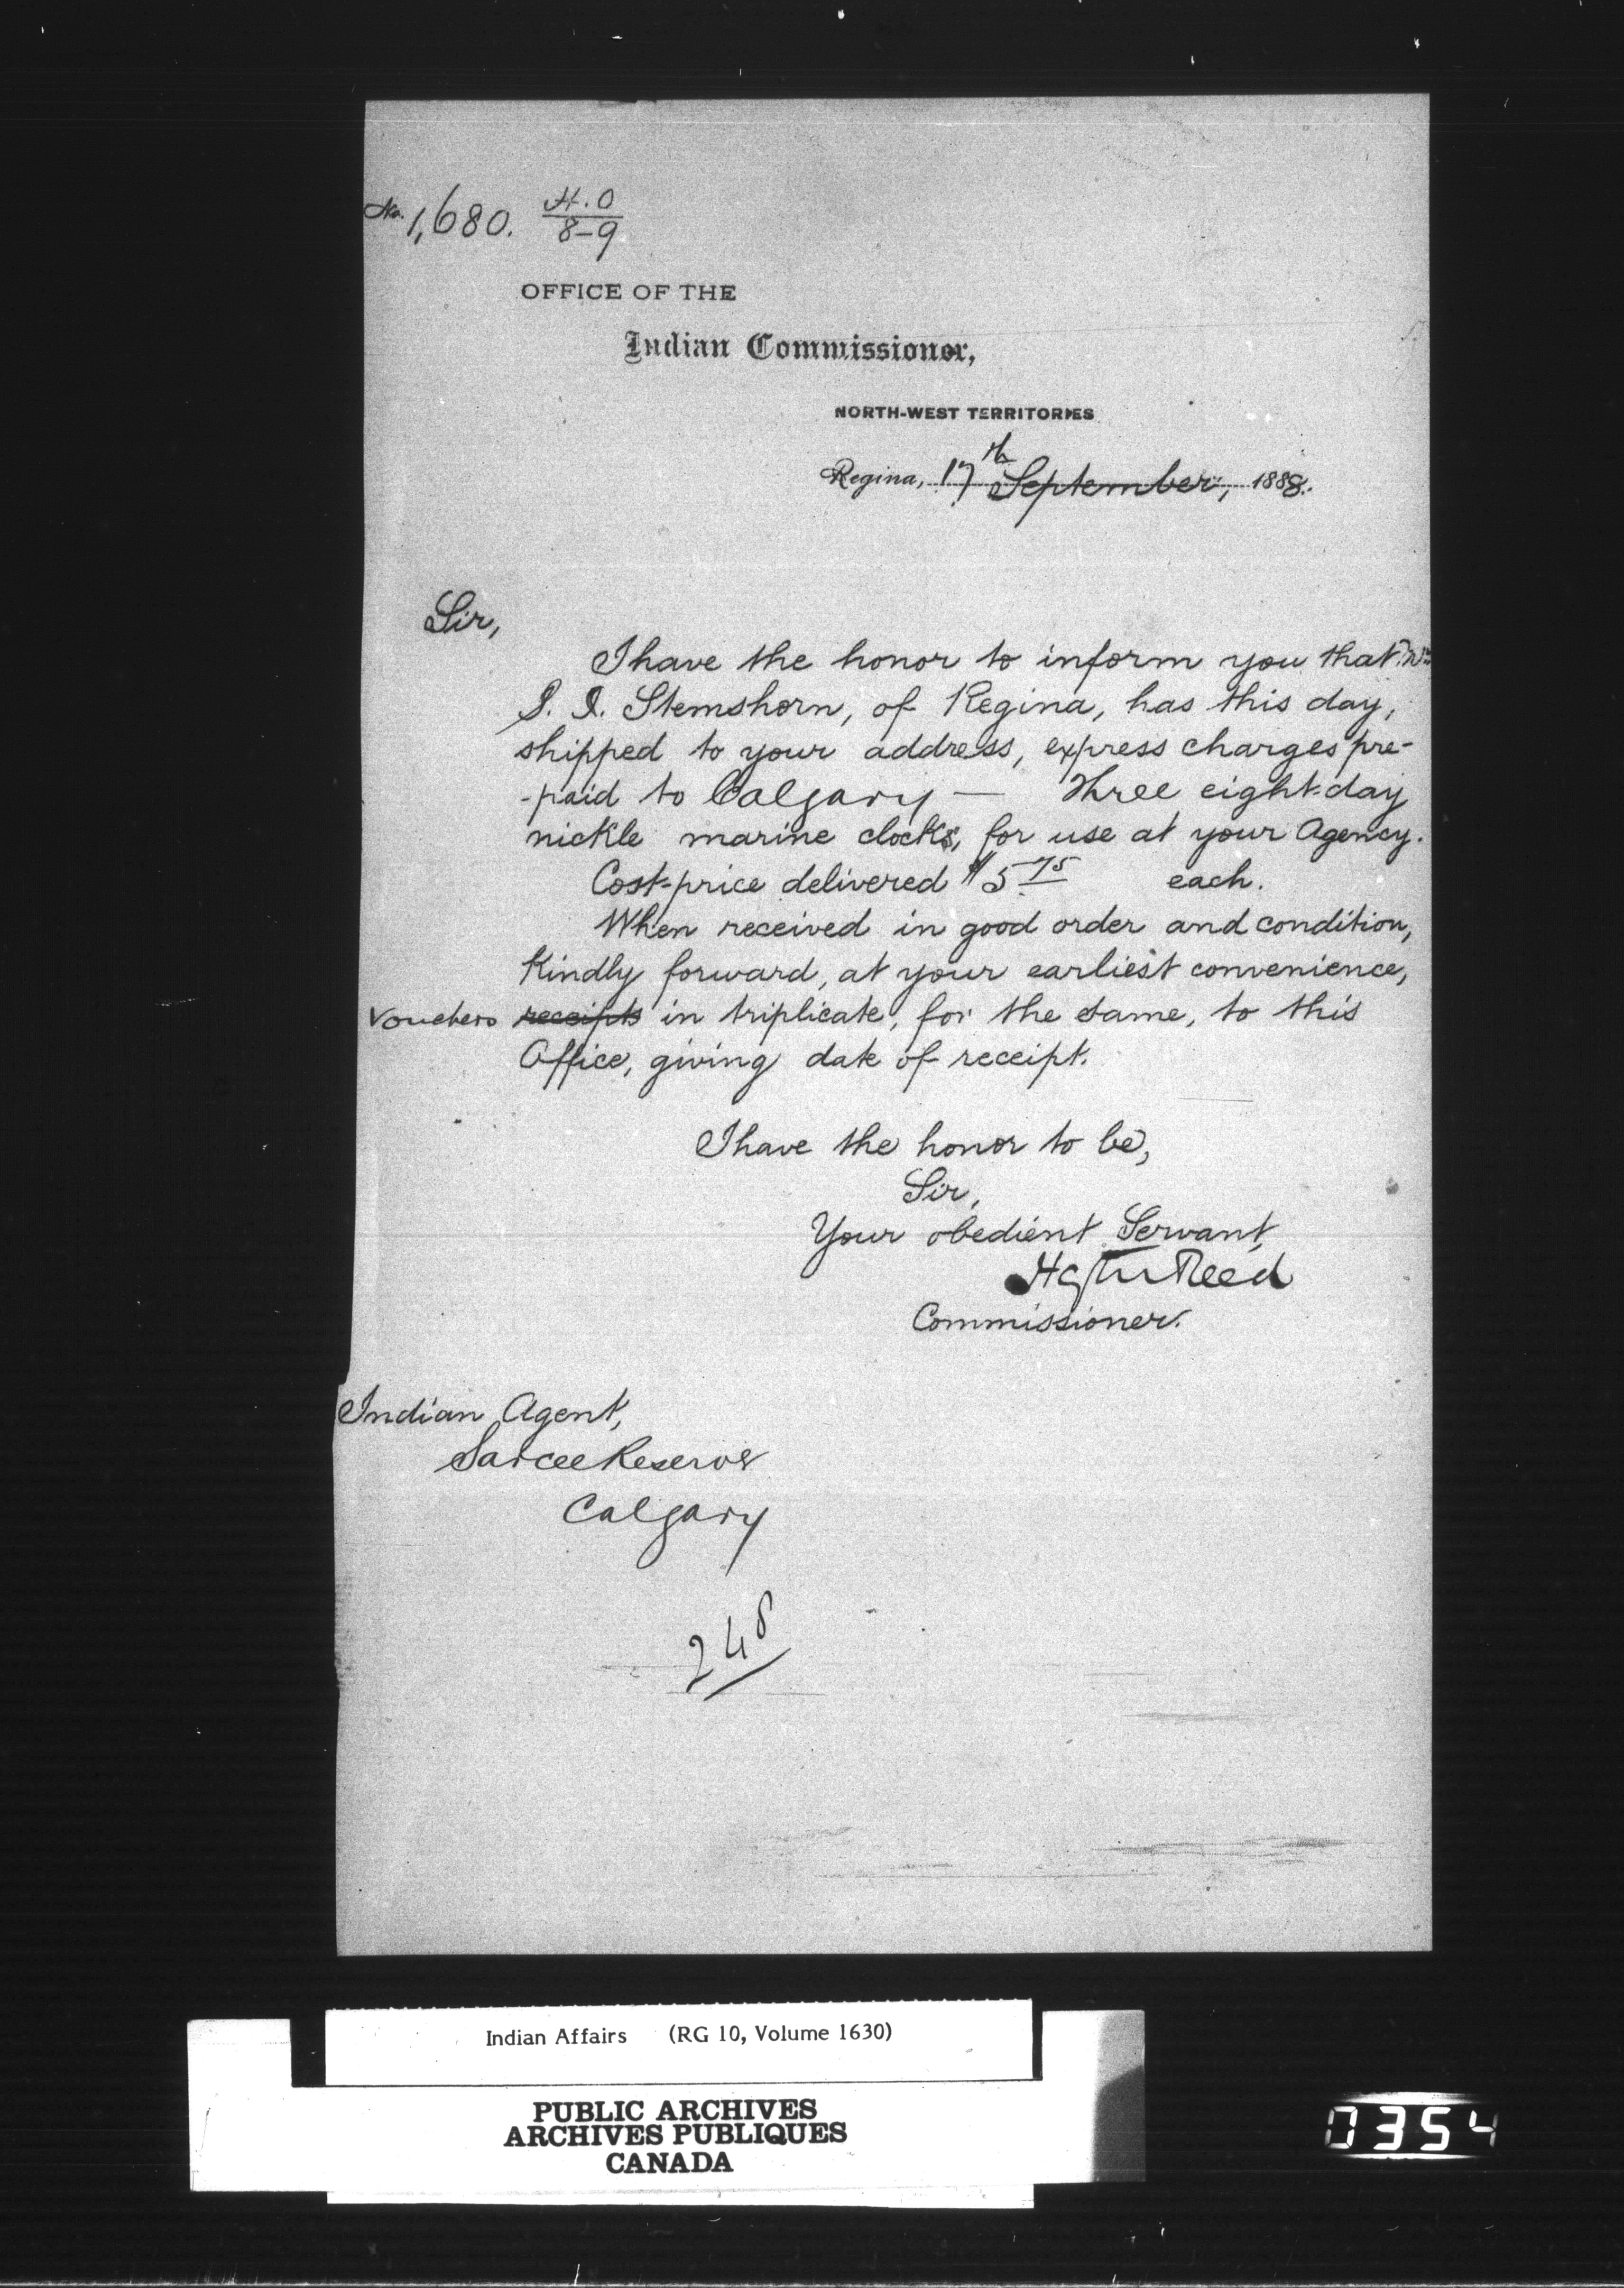 No. 1,680. H.O
8-9
OFFICE OF THE
Indian Commissioner,
NORTH-WEST TERRITORIES
Regina, 17th September, 1888.
Sir,
I have the honor to inform you that
Stemshorn, of Regina, has this day,
shipped to your address, express charges pre-
-paid to Calgary — Three eight-day
nickle marine clocks, for use at your Agency.
Cost-price delivered $5 75 each.
When received in good order and condition,
Kindly forward, at your earliest convenience,
Vouchers receipts in triplicate, for the same, to this
Office, giving date of receipt.
I have the honor to be,
Sir,
Your obedient Servant,
Hayter Reed
Commissioner.
Indian Agent,
Sarcee Reserve
Calgary
248
Indian Affairs (RG 10, Volume 1630)
PUBLIC ARCHIVES
ARCHIVES PUBLIQUES
CANADA
0354